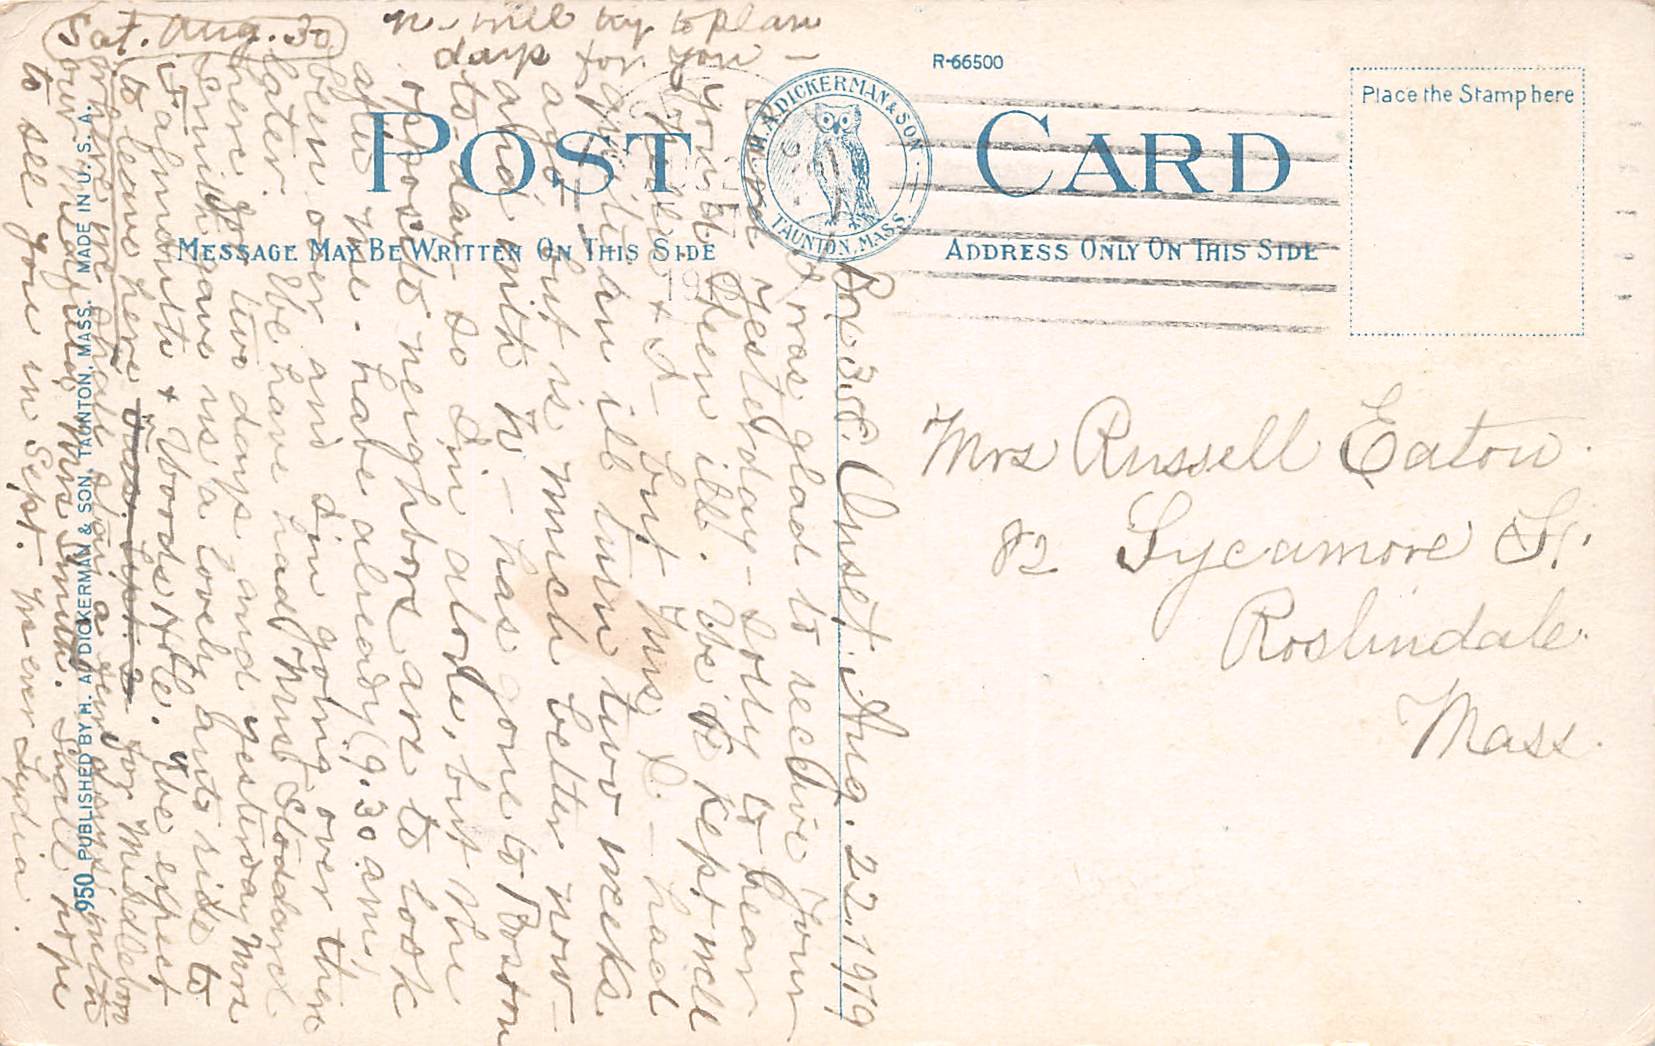 Sat. Aug. 30
will try to plan
days for you —
R-66500
POST CARD
H. A. DICKERMAN & SON
TAUNTON, MASS.
Place the Stamp here
MESSAGE MAY BE WRITTEN ON THIS SIDE
ADDRESS ONLY ON THIS SIDE
950 PUBLISHED BY H. A. DICKERMAN & SON, TAUNTON, MASS. MADE IN U. S. A.
Box 38. Onset. Aug. 22, 1919
I was glad to receive your
card yesterday — sorry to hear
you'd been ill. We've kept well
& I — but Mrs. S — had
quite an ill turn two weeks
ago — but is much better now —
and with — has gone to Boston
to-day — so I'm alone, but the
opposite neighbors are to look
after me. have already (9.30 am)
been over and I'm going over there
later. We have had Mrs. Stoddard
here for two days and yesterday Mrs
Smith gave us a lovely auto ride to
Falmouth & Woods Hole. We expect
to leave here for Middleboro
where we shall a few days with
our Mrs. Smith. Shall hope
to see you in Sept. Lydia.
Mrs Russell Eaton
82 Sycamore St.
Roslindale.
Mass.